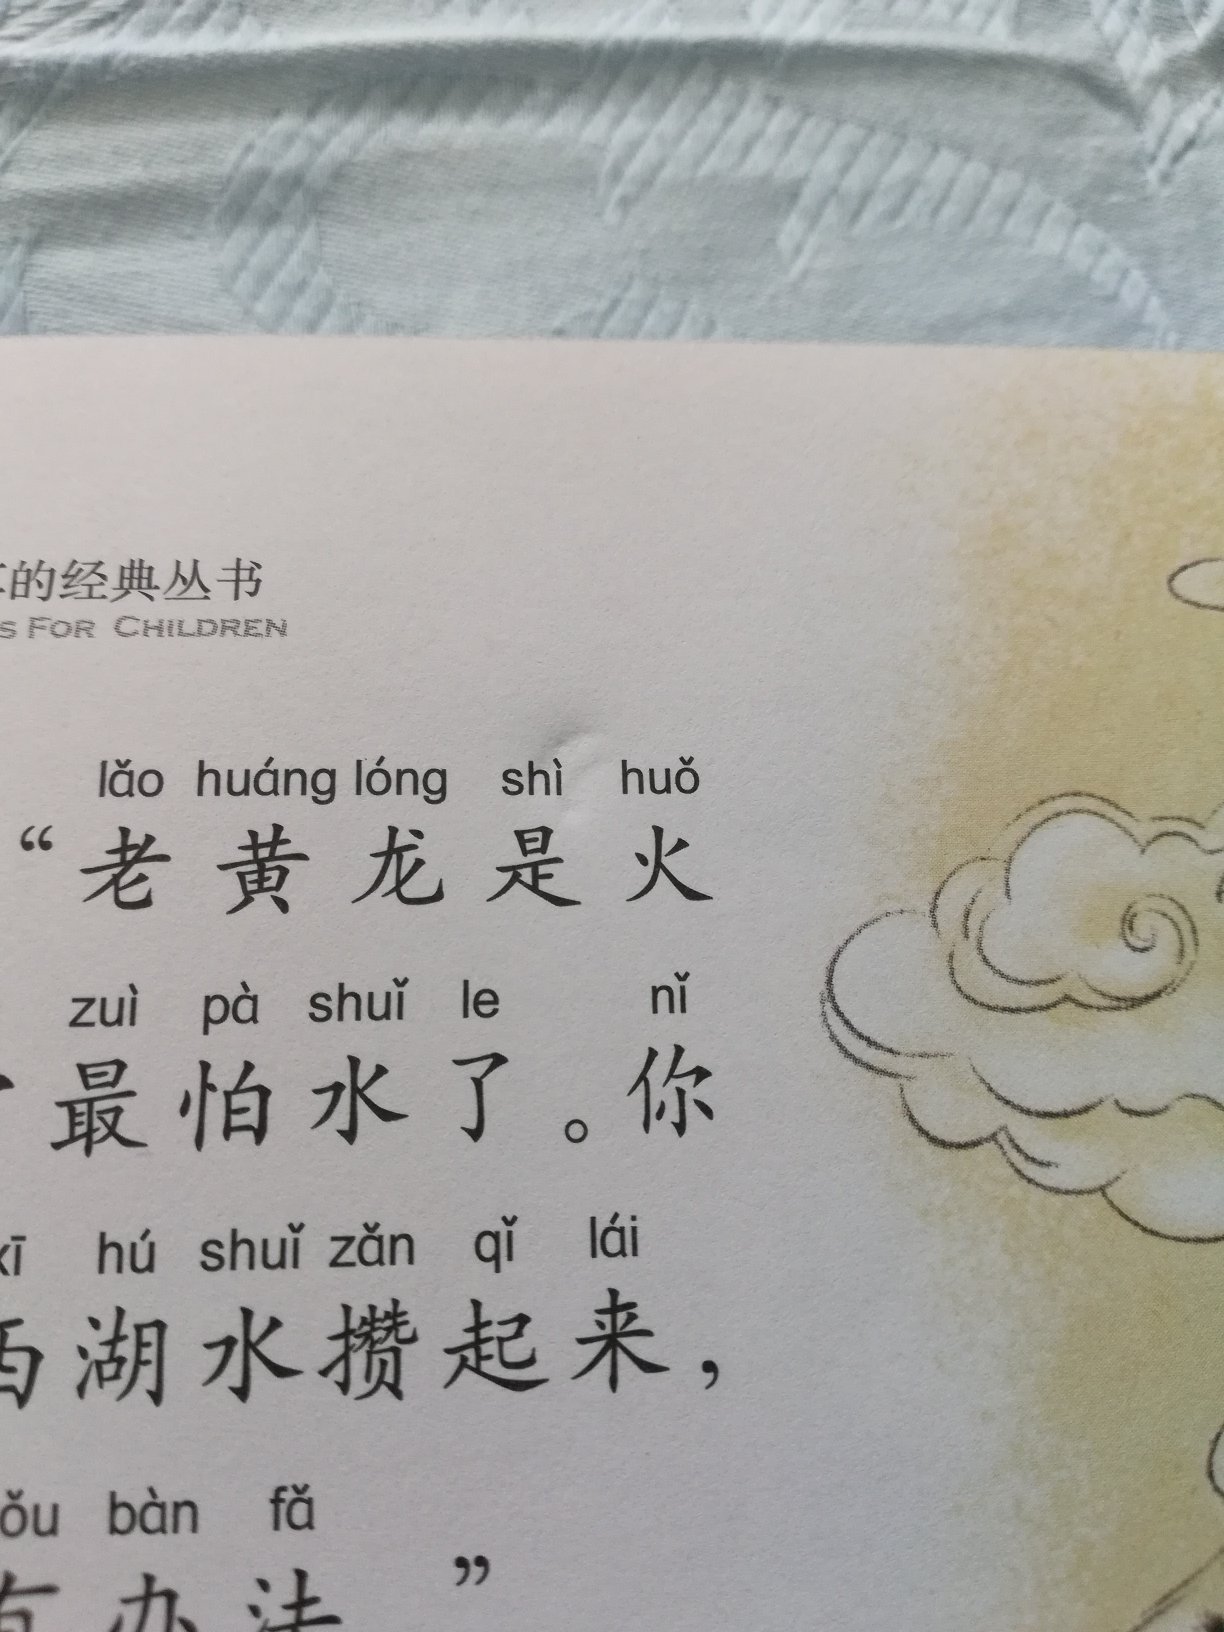 的经典丛书
S FOR CHILDREN
lǎo huáng lóng shì huǒ
“老黄龙是火
zuì pà shuǐ le nǐ
最怕水了。你
xī hú shuǐ zǎn qǐ lái
西湖水攒起来，
ǒu bàn fǎ
有办法”